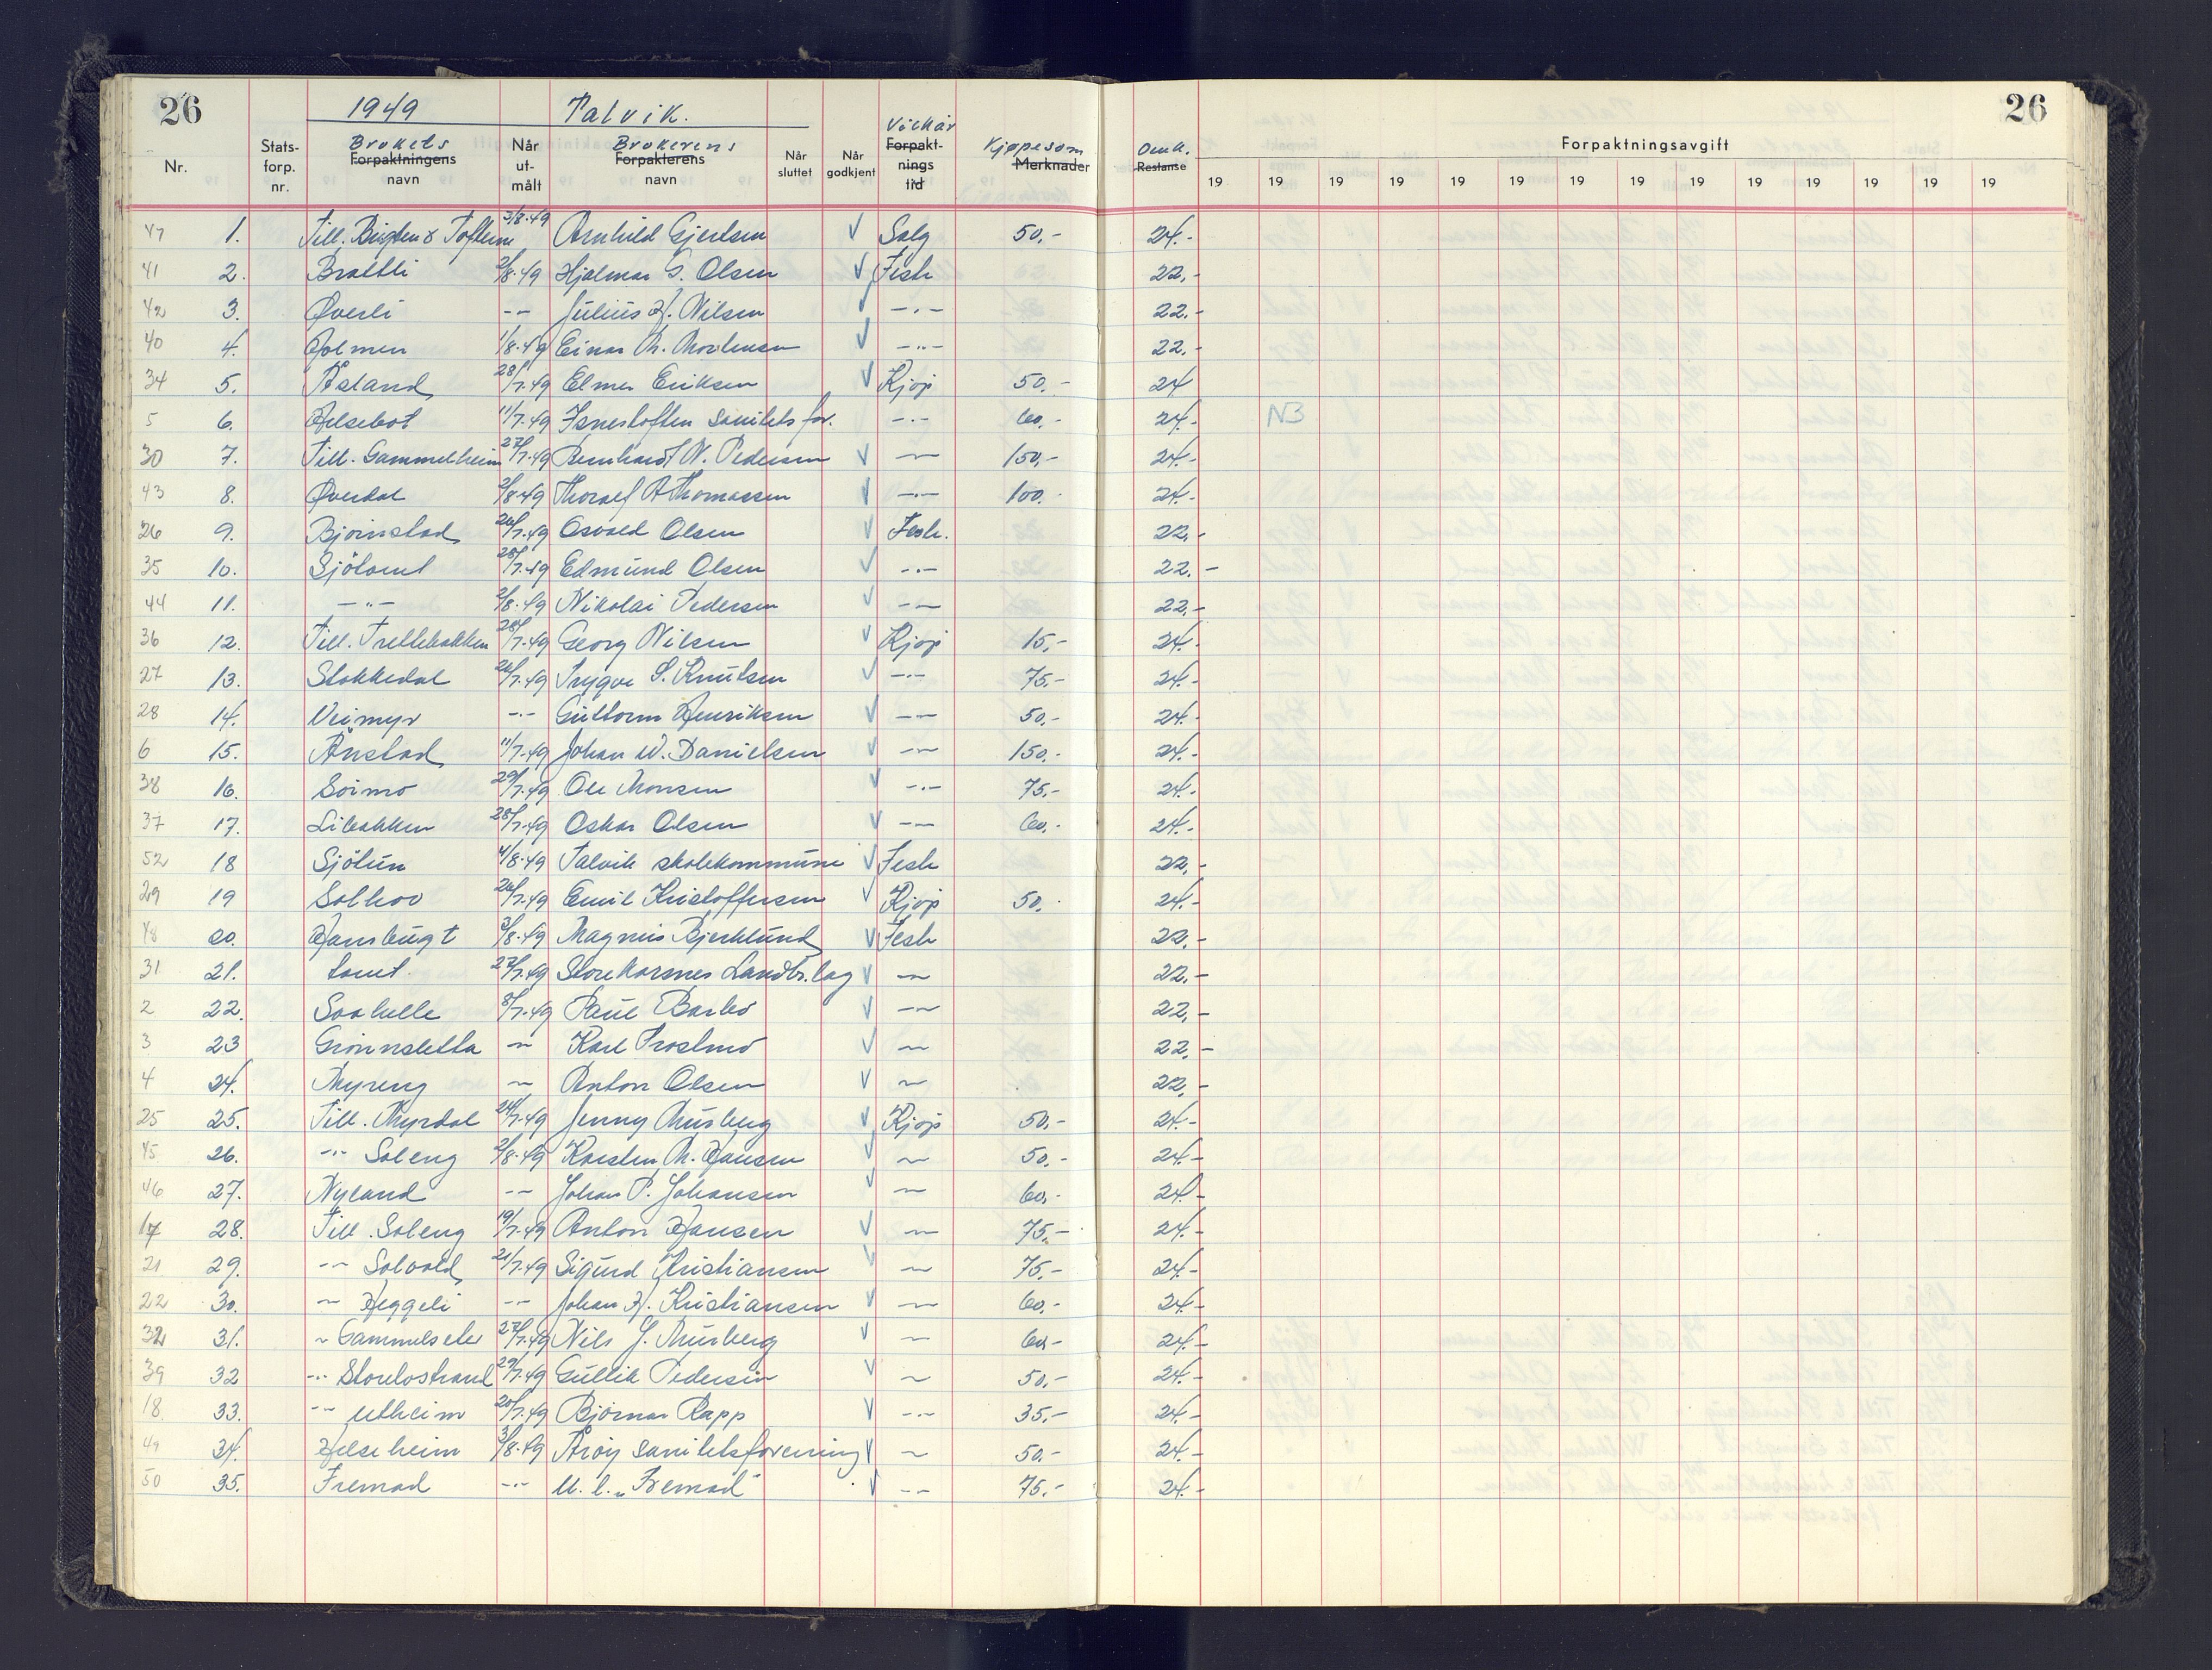 26 1949 Talvik. 26
Nr. Stats-forp. nr. Brukets Forpaktningens navn Når ut-målt Brukerens Forpakterens navn Når sluttet Når godkjent Vilkår Forpakt-nings tid Kjøpesum Merknader Omk. Restanse Forpaktningsavgift
19 19 19 19 19 19 19 19 19 19 19 19 19 19
47 1. Till. 3/8.49 Arnhild Gjertsen V Salg 50,- 24.-
41 2. Brattli 2/8.49 Hjalmar G. Olsen V Feste 22,-
42 3. Øverli -- Julius H. Nilsen V -.- 22.-
40 4. Holmen 1/8.49 Einar M. Mortensen V -..- 22,-
34 5. Åsland 28/7.49 Elmer Eriksen V Kjøp 50,- 24
5 6. Helsebot 11/7.49 Isnestoften Sanitetsfor. -.- 60,- 24.- NB
30 7. Till. Gammelheim 27/7.49 Bernhardt N. Pedersen V -- 150,- 24.-
43 8. Øverdal 2/8.49 Thoralf A Thomassen V -.- 100. 24.-
26 9. Bjørnstad 26/7.49 Osvald Olsen V Feste. 22,-
35 10. Sjøtomt 28/7.49 Edmund Olsen V -.- 22.-
44 11. -"- 2/8.49 Nikolai Pedersen V -- 22,-
36 12. Till. Trellebakken 28/7.49 Georg Nilsen V Kjøp 15,- 24.-
27 13. Stokkedal 26/7.49 Trygve S. Knutsen V -.- 75.- 24.-
28 14. Veimyr -.- Guttorm Henriksen V -- 50,- 24.-
6 15. Ånstad 11/7.49 Johan W. Danielsen V -- 150,- 24.-
38 16. Soimo 29/7.49 Ole Monsen V -.- 75,- 24.-
37 17. Libakken 28/7.49 Oskar Olsen V -- 60,- 24.-
52 18 Sjøtun 4/8.49 Talvik skolekommune V Feste 22,-
29 19 Solhov 26/7.49 Emil Kristoffersen V Kjøp 50. 24.-
48 20. Hansbugt 3/8.49 Magnus Bjerklund V Feste 22,-
31 21. tomt. 27/7.49 Storekorsnes Landbr.lag V -- 22,-
2 22. 8/7.49 Paul Barbo V -- 22,-
3 23 Grønnsletta -- Karl Trostmo V -- 22,-
4 24. Myreng -- Anton Olsen V -- 22,-
25 25. Till. Myrdal 24/7.49 Jenny Murberg V Kjøp 50,- 24.-
45 26. -"- Soleng 2/8.49 Karsten M. Hansen V -- 50,- 24.-
46 27. Nyland -- Johan P. Johansen V -- 60,- 24.-
17 28. Till. Soleng 19/7.49 Anton Hansen V -- 75.- 24.-
21 29. -- Solvold 21/7.49 Sigurd Kristiansen V -- 75,- 24.-
22 30. -- Heggeli -- Johan H. Kristiansen V -- 60,- 24.-
32 31. -- Gammelseter 27/7.49 Nils J. Murberg V -- 60,- 24.-
39 32 -.- Storelvstrand 29/7.49 Gullik Pedersen V -- 50,- 24.-
18 33. -- Utheim 20/7.49 Bjørnar Rapp V -.- 35,- 24.-
49 34. Helseheim 3/8.49 Årøy sanitetsforening V -- 50,- 24.-
50 35. Fremad -.- U.l. "Fremad" V -- 75.- 24.-